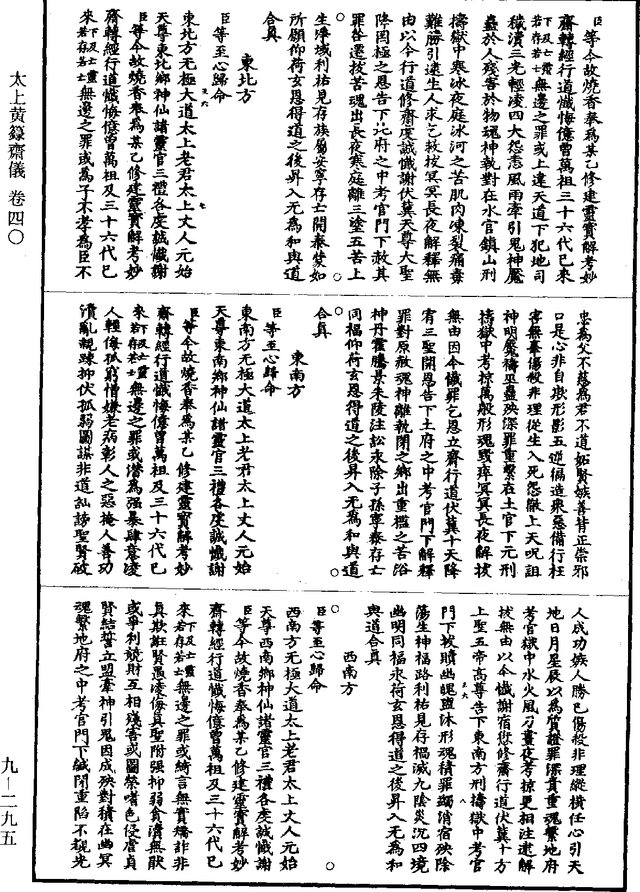 臣等今故燒香奉為某乙修建靈寶解考妙
齋轉經行道懺悔億曾萬祖三十六代已來
若存若亡下及士靈無邊之罪或上違天道下犯地司
穢瀆三光輕凌四大怨恚風雨牽引鬼神
蠱於人殘害於物魂神執對在水官鎮山刑
擣獄中寒冰夜庭冰河之苦肌肉凍裂痛毒
難勝引逮生人求乞救拔冥冥長夜解釋無
由以今行道修齋虔誠懺謝伏冀天尊大聖
降因極之恩告下北府之中考官門下赦其
罪咎還拔苦魂出長夜寒庭離三塗五苦上
生淨域利祐見存族屬安寧存亡開泰蒙如
所願仰荷玄恩得道之後昇入无為和與道
合真
東北方
臣等至心歸命
東北方无極大道太上老君太上丈人元始
天尊東北鄉神仙諸靈官三禮各虔誠懺謝
臣等今故燒香奉為某乙修建靈寶解考妙
齋轉經行道懺悔億曾萬祖及三十六代已
來若存若亡下及士靈無邊之罪或為子不孝為臣不
忠為父不慈為君不道妬賢嫉善背正崇邪
口是心非自欺形影五逆徧造衆惡備行枉
害無辜傷殺非理從生入死怨徹上天呪詛
神明魘禱巫蠱殃深罪重繫在土官下元刑
擣獄中考掠萬般形魂毀瘁冥冥長夜解拔
無由因今懺罪乞恩立齋行道伏冀十天降
宥三聖開恩告下土府之中考官門下解釋
罪對原赦魂神離執閉之鄉出重檻之苦浴
神丹霍騰景朱陵注訟永除子孫軍泰存亡
同福仰荷玄恩得道之後昇入无為和與道
合真
東南方
臣等至心歸命
東南方无極大道太上老君太上丈人元始
天尊東南鄉神仙諸靈官三禮各虔誠懺謝
臣等今故燒香奉為某乙修建靈寶解考妙
齋轉經行道懺悔億曾萬祖及三十六代已
來若存若亡下及士靈無邊之罪或潛為强暴肆意凌
人輕侮孤窮憎嫌老病彰人之惡掩人善功
瀆亂親踈抑伏孤弱圖謀非道訕謗聖賢破
人成功嫉人勝己傷殺非理縱橫任心引天
地日月星辰以為質證罪深責重魂繫地府
考官獄中水火風刀晝夜考掠更相注逮解
拔無由以今懺謝宿愆修齋行道伏冀十方
上聖五帝高尊告下東南方刑擣獄中考官
門下救贖幽魄盥沐形魂積罪蠲消宿殃除
蕩生神福路利祐見存禍滅九陰災沉四境
幽明同福永荷玄恩得道之後昇入无為和
與道合真
西南方
臣等至心歸命
西南方无極大道太上老君太上丈人元始
天尊西南鄉神仙諸靈官三禮各虔誠懺謝
臣等今故燒香奉為某乙修建靈寶解考妙
齋轉經行道懺悔億曾萬祖及三十六代已
來若存若亡下及士靈無邊之罪或綺言無實矯詐非
真欺誑賢愚凌侮真聖附强抑弱貪濟無猒
或爭利競財互相殘害或圖榮嗜色侵虐貞
賢結誓立盟牽神引鬼因成殃對積在幽冥
魂繫地府之中考官門下鍼閉重陷不覩光
太上黄籙齋儀 卷四〇
九—二九五